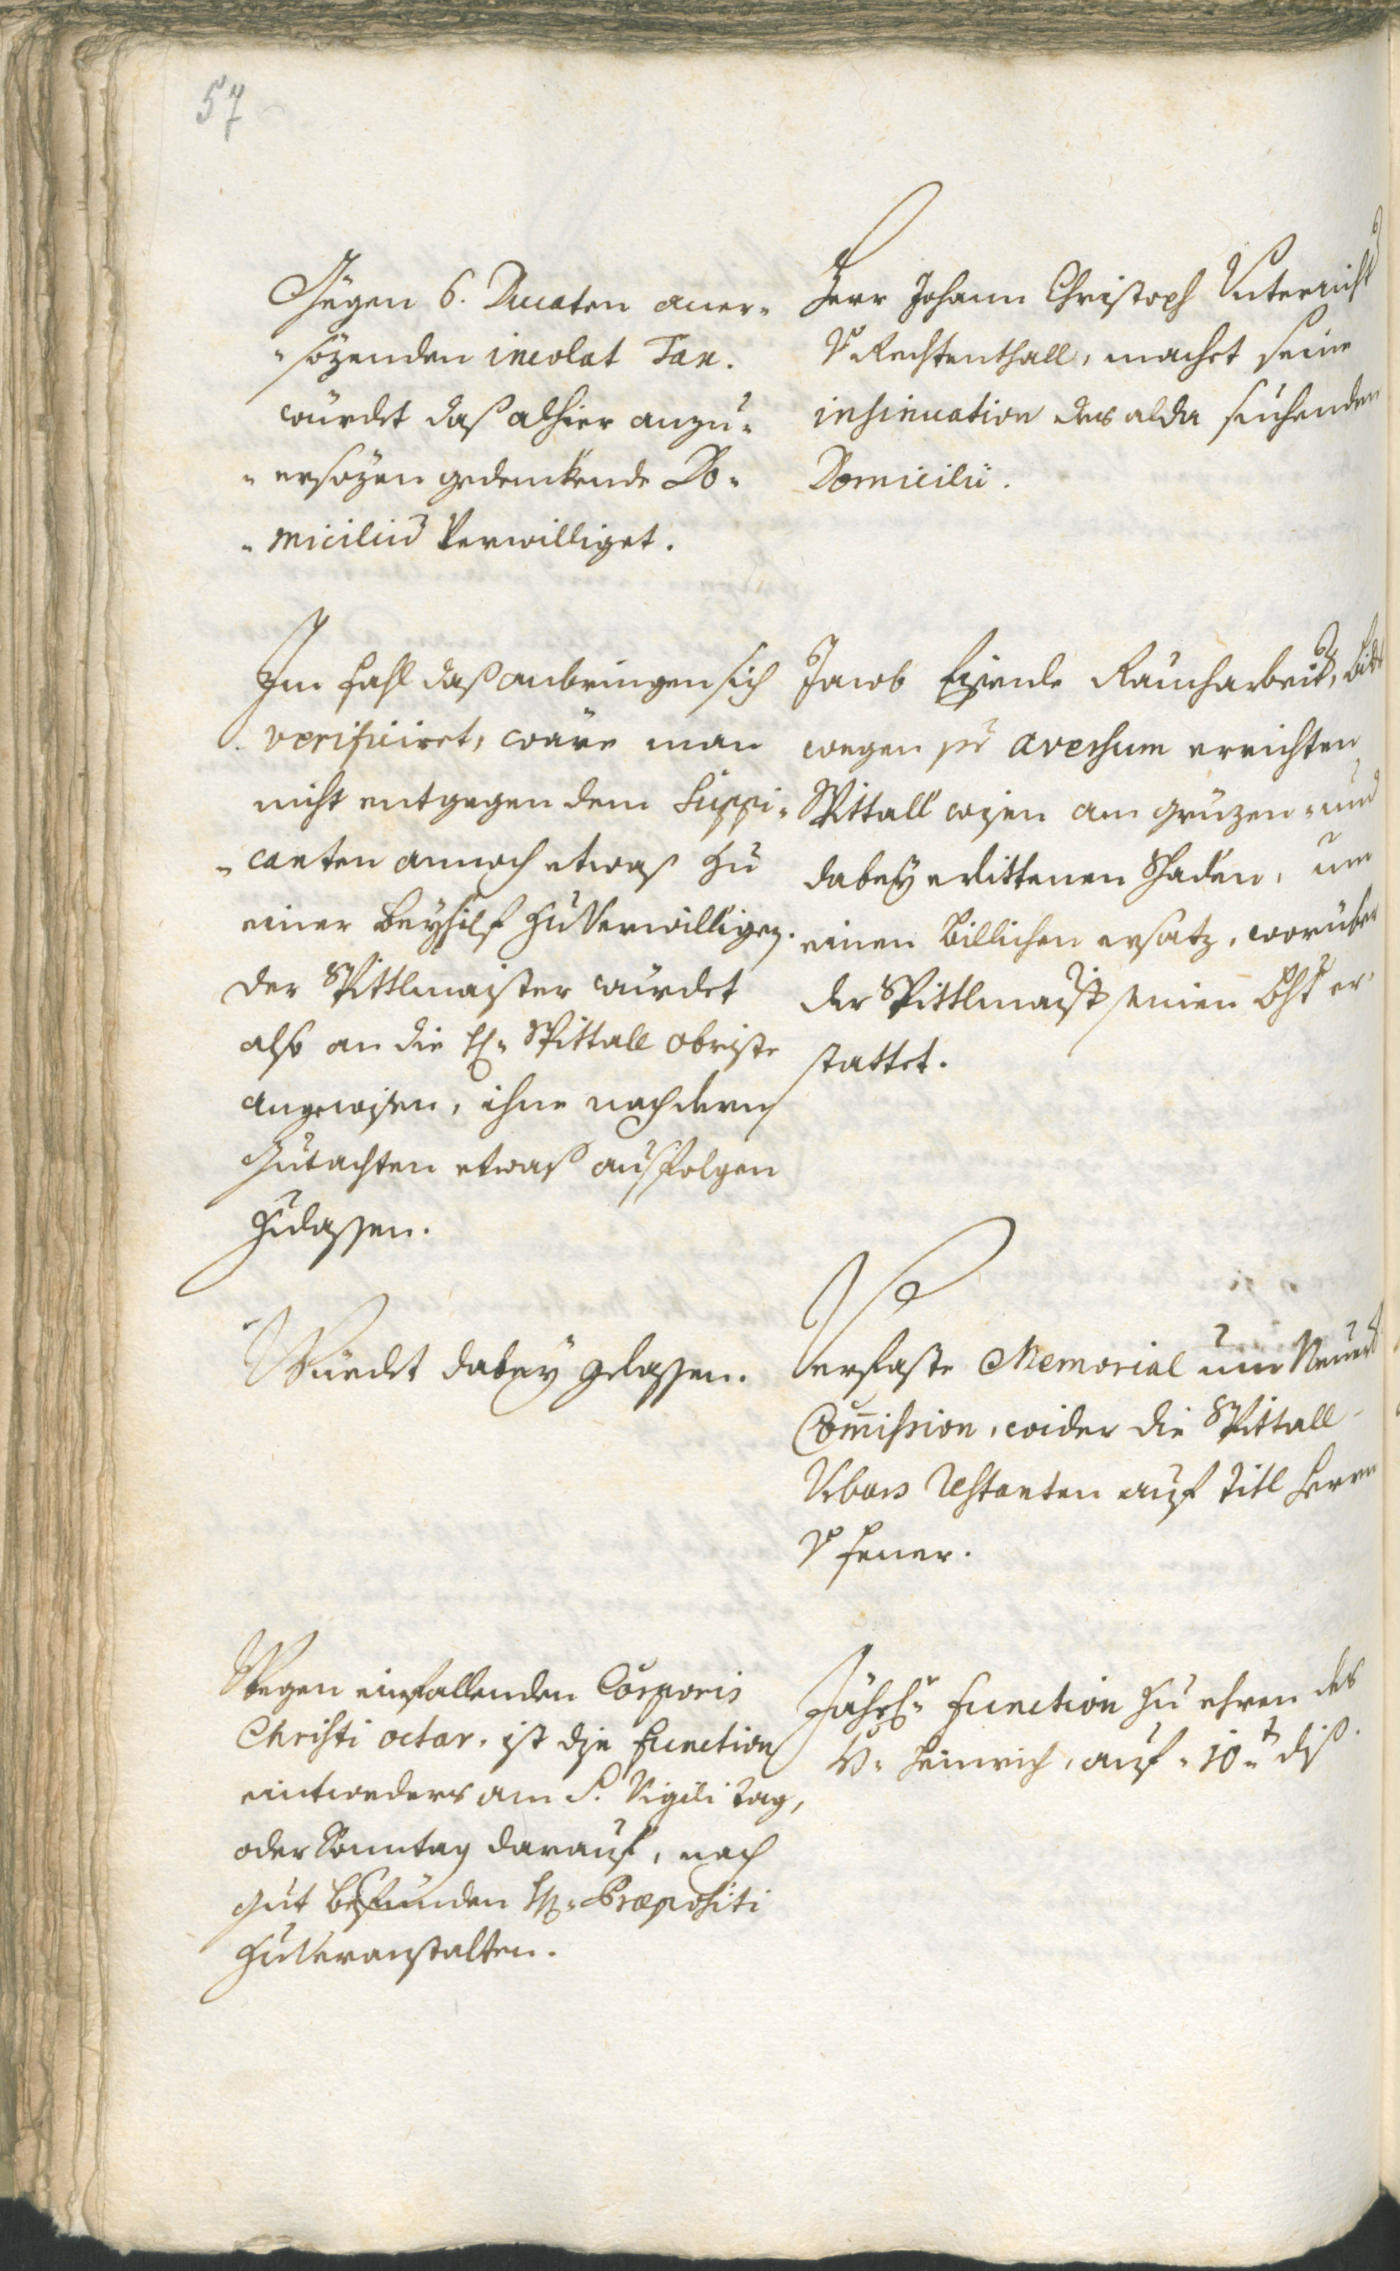 57
Gegen 6. Ducaten aner-
-sözenden incolat Tax.
würdet daß alhier anzu-
-ersözen gedenckende Do-
-micilium Verwilliget.
Herr Johann Christoph Unterricht
V Rechtenthall, machet seine
insinuation des alda suchenden
Domicilii.
Im fahl daß anbringen sich
verificiret, wäre man
nicht entgegen dem Suppi-
-canten annoch etwaß zu
einer Beyhilf zu Verwilligen.
der Spittlmaister würdet
also an die H: Spittall obriste
angewisen, ihne nach dern
Gutachten etwaß ausfolgen
zulassen.
Jacob Raucharbeit,
wegen aversum errichten
Spittall wisen am Grüzen- und
dabey erlittenen Schaden, um
einen Billichen ersatz, worüber
der Spittlmaist seinen Bht er-
stattet.
Würdet dabey gelassen.
Verfaste Memorial um Neue
Commission, wider die Spittall
Urbars restanten auf Titl Herrn
V Fener.
Wegen einfallenden Corporis
Christi octav. ist dise Function
eintweders am S. Vigili Tag,
oder Sonntag darauf, nach
gut Befunden H: Præpositi
zu Veranstalten.
Jährl: Function zu ehren des
V: Heinrich, auf 10t diß.